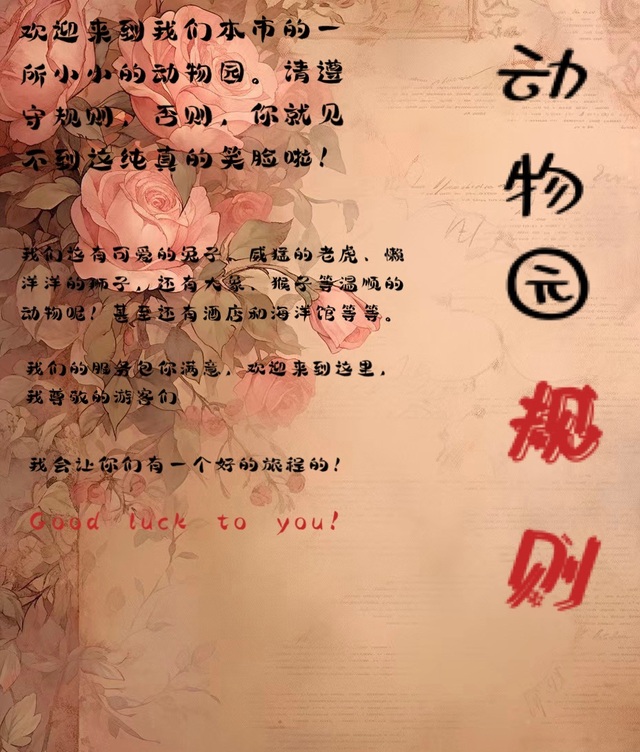 欢迎来到我们本市的一
所小小的动物园。请遵
守规则，否则，你就见
不到这纯真的笑脸啦！
我们这有可爱的兔子、威猛的老虎、懒
洋洋的狮子，还有大象、猴子等温顺的
动物呢！甚至还有酒店和海洋馆等等。
我们的服务包你满意，欢迎来到这里，
我尊敬的游客们
我会让你们有一个好的旅程的！
Good luck to you!
动
物
园
规
则